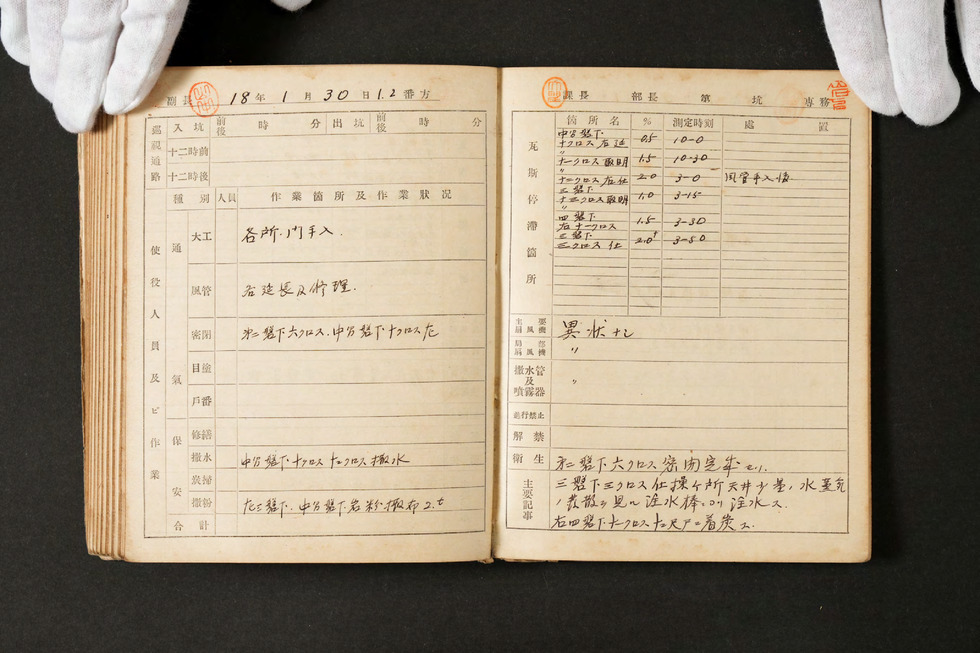 副長 18年 1月 30日 1.2番方
巡視通路 入坑 前後 時 分 出坑 前後 時 分
十二時前
十二時後
使役人員及ビ作業
種別 人員 作業箇所及作業狀況
通氣
大工 各所門手入.
風管 各延長及修理.
密閉 第二盤下六クロス.中分盤下十クロス左
目塗
戶番
保安
修繕
撒水 中分盤下十クロス 撒水
炭掃
撒粉 左三盤下.中分盤下岩粉撒布2.t
合計
課長 部長 第 坑 專務
瓦斯停滯箇所
箇所名 % 測定時刻 處置
中分盤下
十クロス右延 0.5 10-0
〃
十一クロス取明 1.5 10-30
〃
十二クロス右仕 2.0 3-0 風管手入後
三盤下
十三クロス取明 1.0 3-15
〃
四盤下
右十一クロス 1.5 3-30
三盤下
三クロス仕 2.0 3-50
主要扇風機 異狀ナシ
局部扇風機 〃
撒水管及噴霧器 〃
通行禁止
解禁
衛生
主要記事
第二盤下六クロス密閉完成セリ.
三盤下三クロス仕 ケ所天井 水蒸気
ノ發散ヲ見ル 注水棒 注水ス.
右四盤下十一クロス 着炭ス.